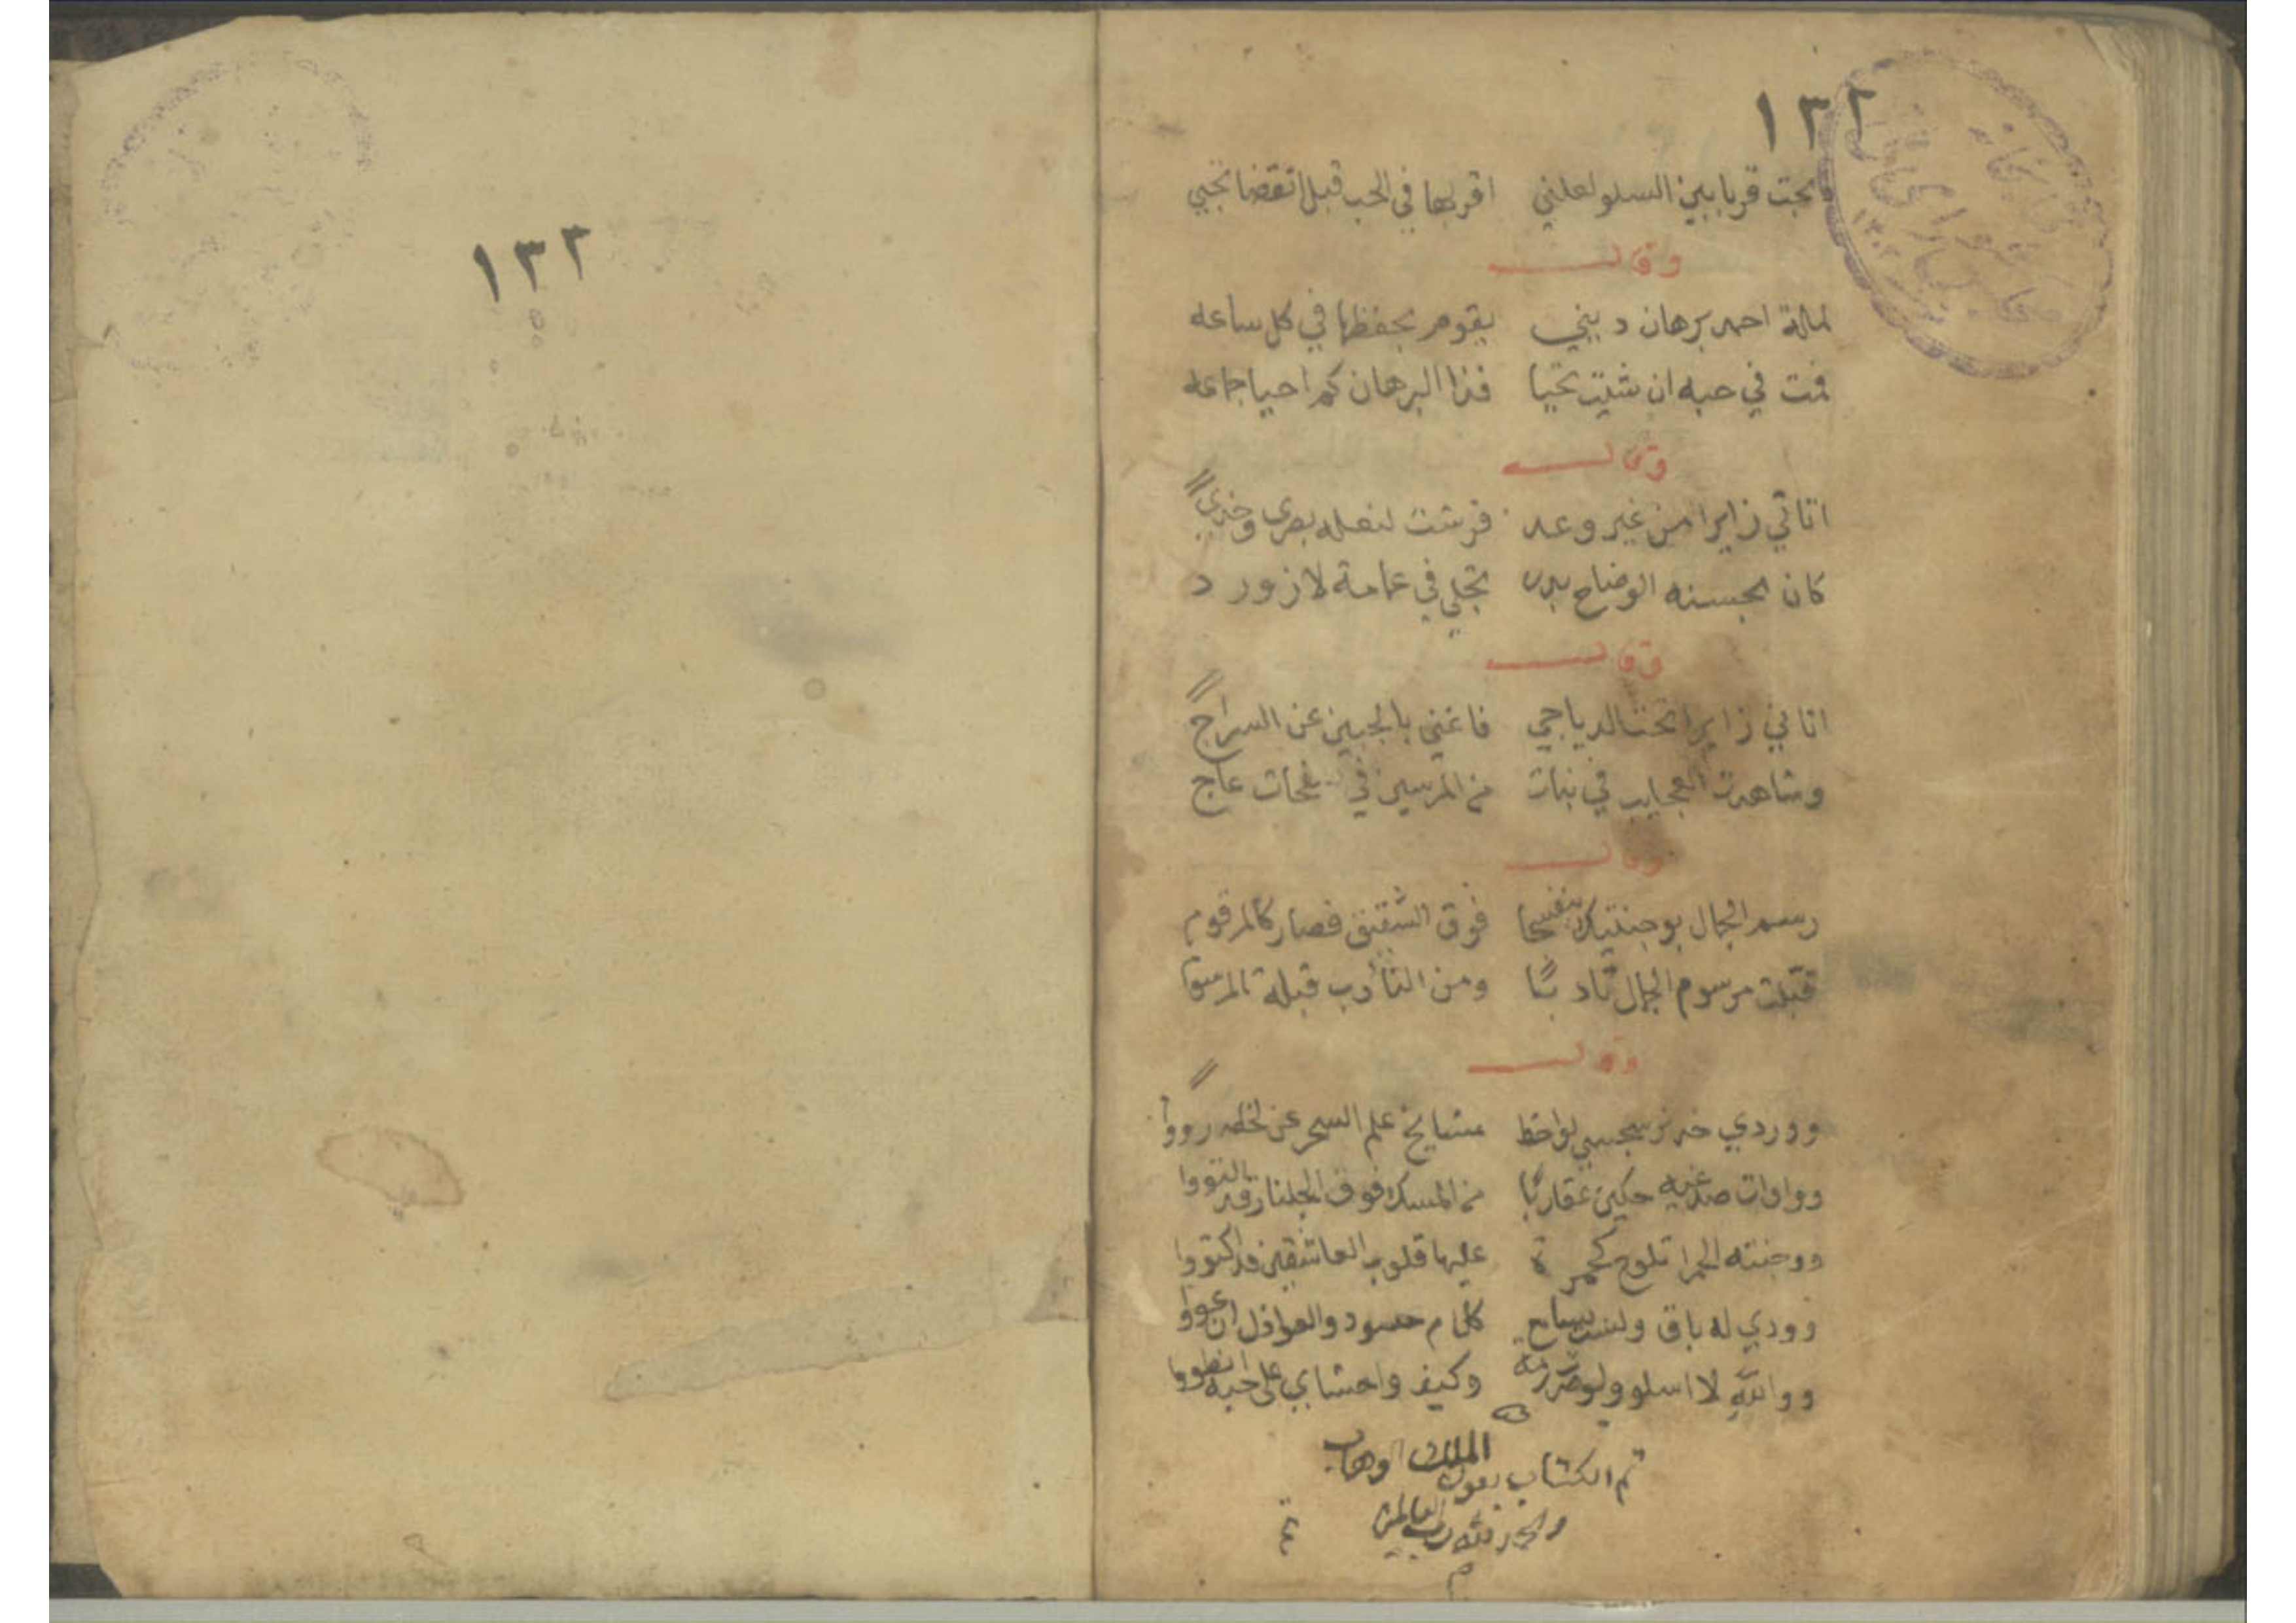 ١٣٢
بحبت قربا بين السلو لعلني اقر بها في الحب قبل انقضا نحبي
وقال
لمالة احمد برهان ديني يقوم بحفظها في كل ساعه
فمت في حبه ان شيت تحيا فذا البرهان كم احيا جماعه
وقال
اتاني زايرا من غير وعد فرشت لنعله بصري وخدي
كان بحسنه الوضاح بدر تجلي في عمامة لازورد
وقال
اتاني زايرا تحت الدياجي فاغني بالجبين عن السراج
وشاهدت العجايب في نبات من المرسين في عاج
وقال
رسم الجمال بوجنتيك بنفسجا فوق الشقيق فصار كالمرقوم
قبلت مرسوم الجمال تادبًا ومن التأدب قبلة المرسوم
وقال
ووردي خد نرجسي لواحظ مشايخ علم السحر عن لحظه رووا
وواوات صدغيه حكين عقاربًا من المسك فوق الجلنار قد التووا
ووجنته الحمرا تلوح كجمرة عليها قلوب العاشقين قد اكتووا
وودي له باق ولست بسامع كلام حسود والعواذل ان عووا
ووالله لا اسلو ولو صرت رمة وكيف واحشاي على حبه انطووا
تم الكتاب بعون الملك الوهاب
والحمد لله رب العالمين
تم
م
١٣٢